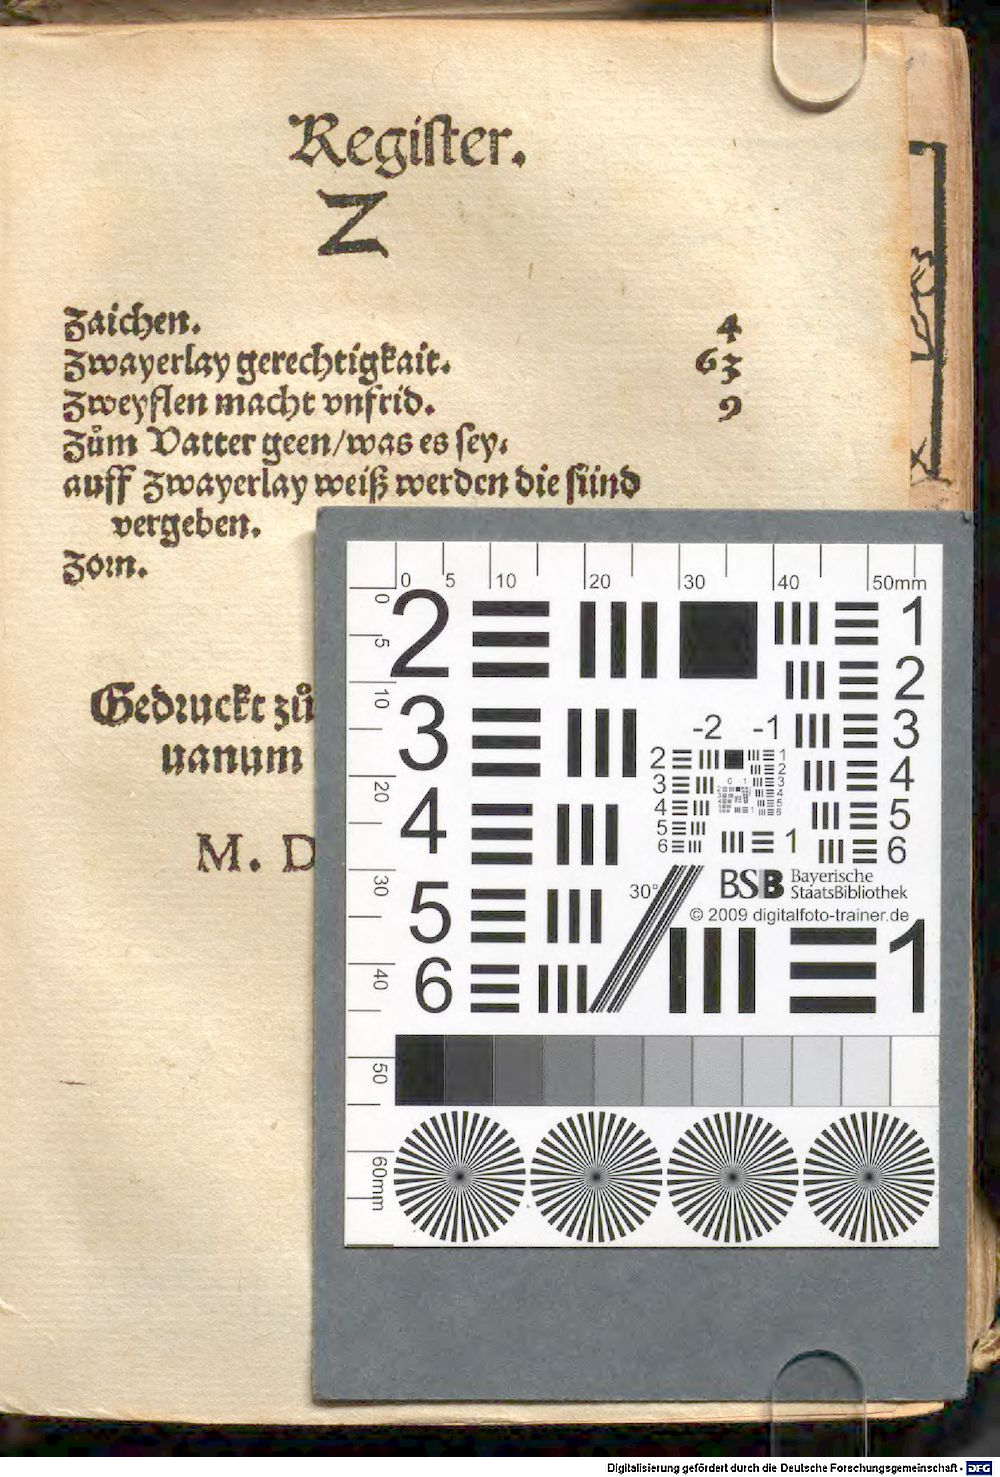 Register.
Z
Zaichen. 4
Zwayerlay gerechtigkait. 63
Zweyflen macht vnfrid. 9
Zům Vatter geen/was es sey.
auff Zwayerlay weiß werden die sünd
vergeben.
Zorn.
Gedruckt zů
uanum
M. D
0 5 10 20 30 40 50mm
0 5 10 20 30 40 50 60mm
2 1
2
3 -2 -1 3
2 1
2
3 3
4 4 4
5 5
5 6 1 6
30°
BSB Bayerische
StaatsBibliothek
© 2009 digitalfoto-trainer.de
5 1
6
Digitalisierung gefördert durch die Deutsche Forschungsgemeinschaft - DFG